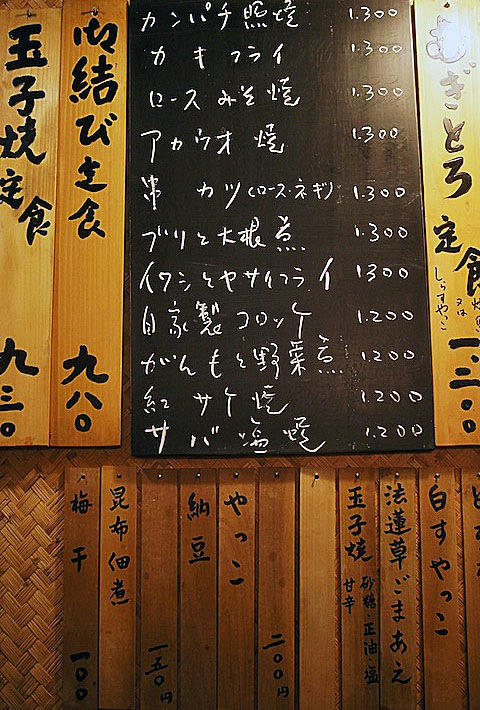 カンパチ照焼 1.300
カキフライ 1.300
ロースみそ焼 1.300
アカウオ焼 1.300
串カツ(ロース・ネギ) 1.300
ブリと大根煮 1.300
イワシとヤサイフライ 1300
自家製コロッケ 1.200
がんもと野菜煮 1.200
紅サケ焼 1.200
サバ塩焼 1.200
むぎとろ定食 一、三〇〇
又は
しらすやっこ
御結び定食 九八〇
玉子焼定食 九三〇
白すやっこ
法蓮草ごまあえ
玉子焼
砂糖・正油・塩
甘辛
二〇〇円
やっこ
納豆
一五〇円
昆布佃煮
梅干 一〇〇